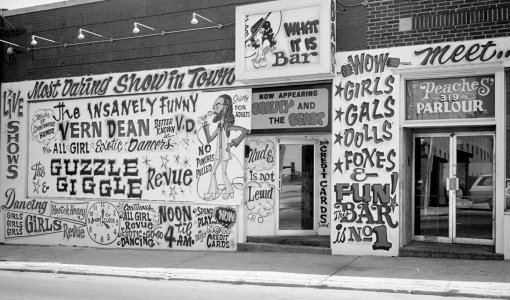 WHAT
IT IS
Bar
NOW APPEARING
BEAUTY AND
THE BEAST
Most Daring Show in Town
LIVE
SHOWS
The INSANELY FUNNY
VERN DEAN
BETTER
KNOWN
AS
V.D.
ALL GIRL Exotic Dancers
The
GUZZLE
& GIGGLE
Revue
NO
PUNCHES
PULLED
FOR
ADULTS
Nude
is not
Lewd
CREDIT CARDS
Dancing
GIRLS
GIRLS
GIRLS
Revue
ALL GIRL
Revue
EXOTIC GO GO
DANCING
NOON
'til
4 AM
NOW
CREDIT CARDS
WOW
GIRLS
GALS
DOLLS
FOXES
&
FUN!
BAR
is NO 1
Meet..
Peaches
319
PARLOUR